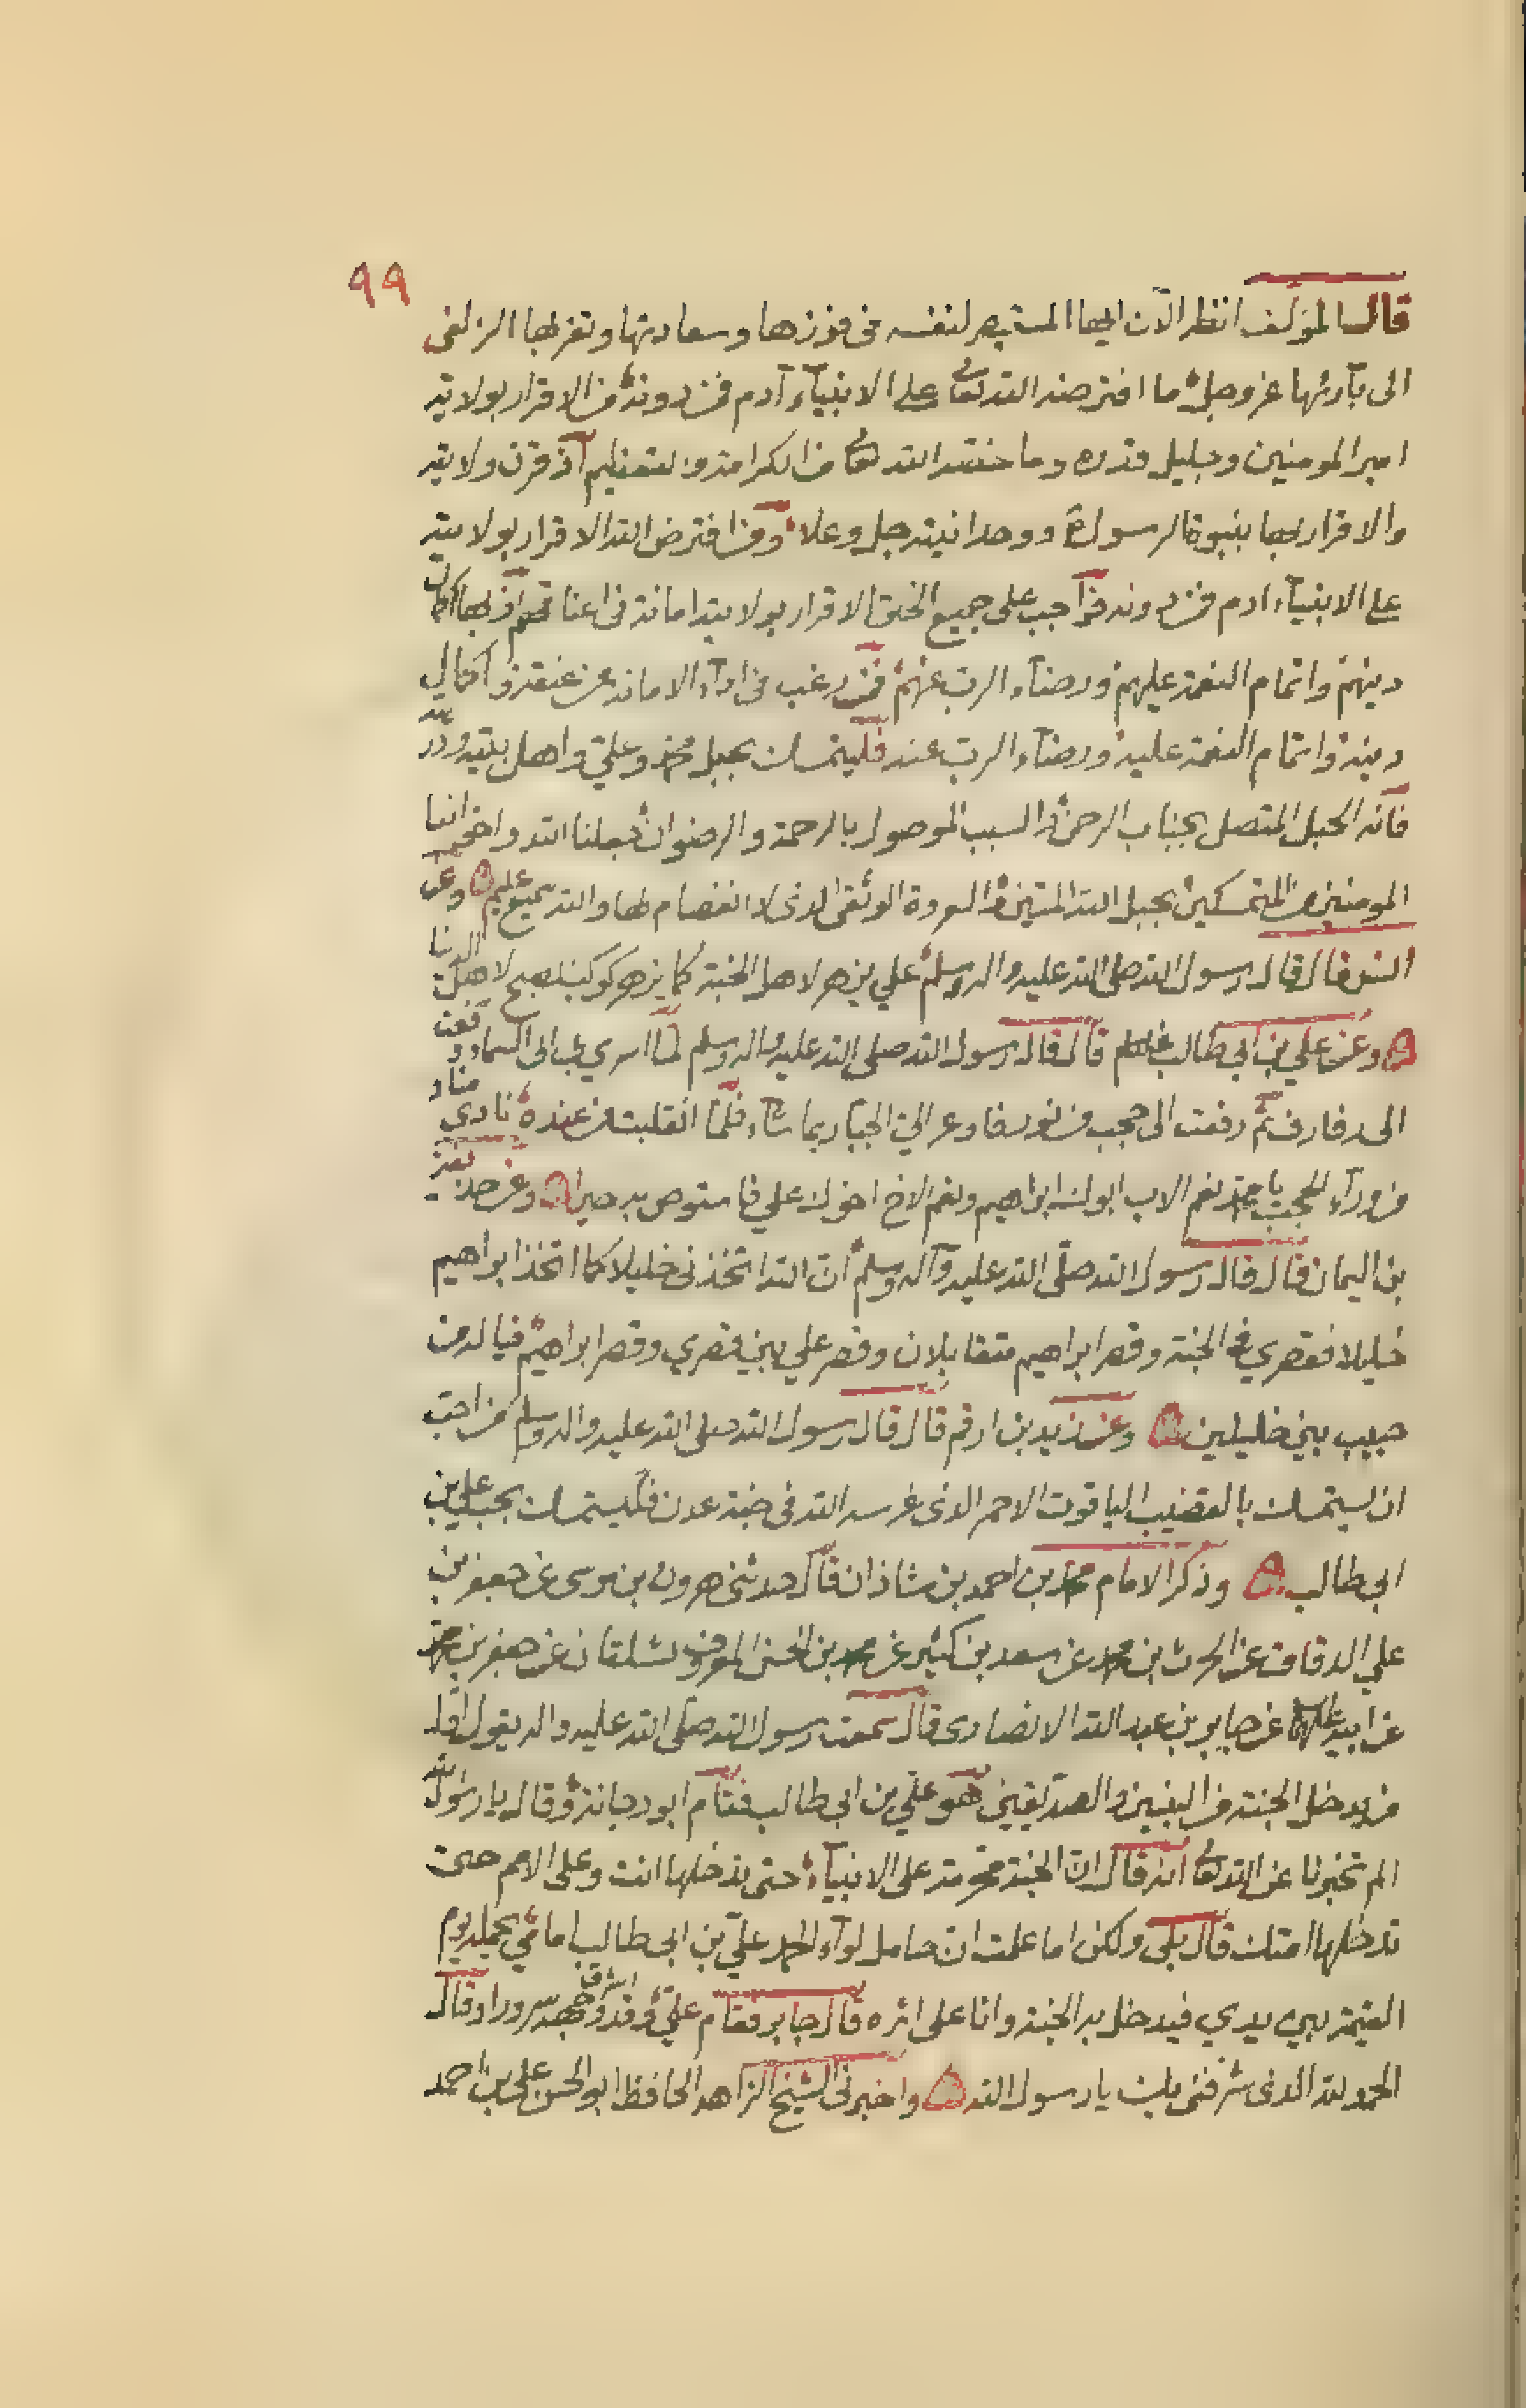 ٩٩
قال المؤلف انظر الآن ايها المستبصر لنفسه فى فوزها وسعادتها وتقربها الزلفى
الى بآرئها عز وجل ما افترضه الله تعالى على الانبيآء آدم فمن دونه من الاقرار بولايته
امير المومنين وجليل قدره وما خصه الله تعالى من الكرامة والتعظيم اذ قرن ولايته
والاقرار بها بنبوة الرسول ووحدانيته جل وعلا ومن افترض الله الاقرار بولايته
على الانبيآء ادم فمن دونه فواجب على جميع الخلق الاقرار بولايته امانة فى اعناقهم اذ بها اكمال
دينهم واتمام النعمة عليهم ورضآء الرب عنهم فمن رغب فى ادآء الامانة عن عنقه واكمال
دينه واتمام النعمة عليه ورضآء الرب عنه فليتمسك بحبل محمد وعلي واهل بيته وذريته
فانه الحبل المتصل بجناب الرحمن والسبب الموصول بالرحمة والرضوان جعلنا الله واخواننا
المومنين من المتمسكين بحبل الله المتين والعروة الوثقى الذى لا انفصام لها والله سميع عليم وعن
انس قال قال رسول الله صلى الله عليه واله وسلم علي يزهر لاهل الجنة كما يزهر كوكب الصبح لاهل الدنيا
وعن علي بن ابي طالب عليه السلم قال قال رسول الله صلى الله عليه واله وسلم لما اسري بي الى السماء ورفعت
الى رفارف ثم رفعت الى حجب من نور فاوعز الي الجبار بما شآء فلما انقلبت من عنده نادى مناد
من ورآء الحجب يا محمد نعم الاب ابوك ابراهيم ونعم الاخ اخوك علي فاستوص به خيرا وعن حذيفة
بن اليمان قال قال رسول الله صلى الله عليه وآله وسلم ان الله اتخذنى خليلا كما اتخذ ابراهيم
خليلا فقصري فى الجنة وقصر ابراهيم متقابلان وقصر علي بين قصري وقصر ابراهيم فياله من
حبيب بين خليلين وعن زيد بن ارقم قال قال رسول الله صلى الله عليه واله وسلم من احب
ان يستمسك بالقضيب الياقوت الاحمر الذى غرسه الله فى جنة عدن فليستمسك بحب علي بن
ابى طالب وذكر الامام محمد بن احمد بن شاذان قال حدثنى هرون بن موسى عن جعفر بن
علي الدقاق عن الحرث بن محمد عن سعد بن كثير عن محمد بن الحسن المعروف بشلقان عن جعفر بن محمد
عن ابيه عليهما السلم عن جابر بن عبد الله الانصارى قال سمعت رسول الله صلى الله عليه واله يقول اول
من يدخل الجنة من النبيين والصديقين هو علي بن ابى طالب فقام ابو دجانة وقال يا رسول الله
الم تخبرنا عن الله تعالى انه قال ان الجنة محرمة على الانبيآء حتى تدخلها انت وعلى الامم حتى
تدخلها امتك قال بلى ولكن اما علمت ان حامل لوآء الحمد علي بن ابى طالب امامي يحمله يوم
القيمة بين يدي فيدخل به الجنة وانا على اثره قال جابر فقام علي وقد اشرق وجهه سرورا وقال
الحمد لله الذى شرفنى بك يا رسول الله واخبرنى الشيخ الزاهد الحافظ ابو الحسن علي بن احمد